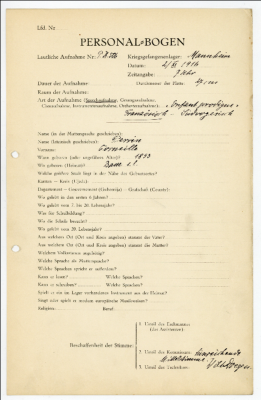 Lfd. Nr.
PERSONAL-BOGEN
Lautliche Aufnahme Nr.: Kriegsgefangenenlager: Mannheim
Datum:
Zeitangabe:
Dauer der Aufnahme: Durchmesser der Platte:
Raum der Aufnahme:
Art der Aufnahme (Sprechaufnahme, Gesangsaufnahme,
Choraufnahme, Instrumentenaufnahme, Orchesteraufnahme):
Französisch -
Name (in der Muttersprache geschrieben):
Name (lateinisch geschrieben):
Vorname:
Wann geboren (oder ungefähres Alter)? 1893
Wo geboren (Heimat)?
Welche größere Stadt liegt in der Nähe des Geburtsortes?
Kanton — Kreis (Ujedz):
Departement — Gouvernement (Gubernija) — Grafschaft (County):
Wo gelebt in den ersten 6 Jahren?
Wo gelebt vom 7. bis 20. Lebensjahr?
Was für Schulbildung?
Wo die Schule besucht?
Wo gelebt vom 20. Lebensjahr?
Aus welchem Ort (Ort und Kreis angeben) stammt der Vater?
Aus welchem Ort (Ort und Kreis angeben) stammt die Mutter?
Welchem Volksstamm angehörig?
Welche Sprache als Muttersprache?
Welche Sprachen spricht er außerdem?
Kann er lesen? Welche Sprachen?
Kann er schreiben? Welche Sprachen?
Spielt er ein im Lager vorhandenes Instrument aus der Heimat?
Singt oder spielt er modern europäische Musikweisen?
Religion: Beruf:
Beschaffenheit der Stimme:
1. Urteil des Fachmannes
(des Assistenten):
2. Urteil des Kommissars: